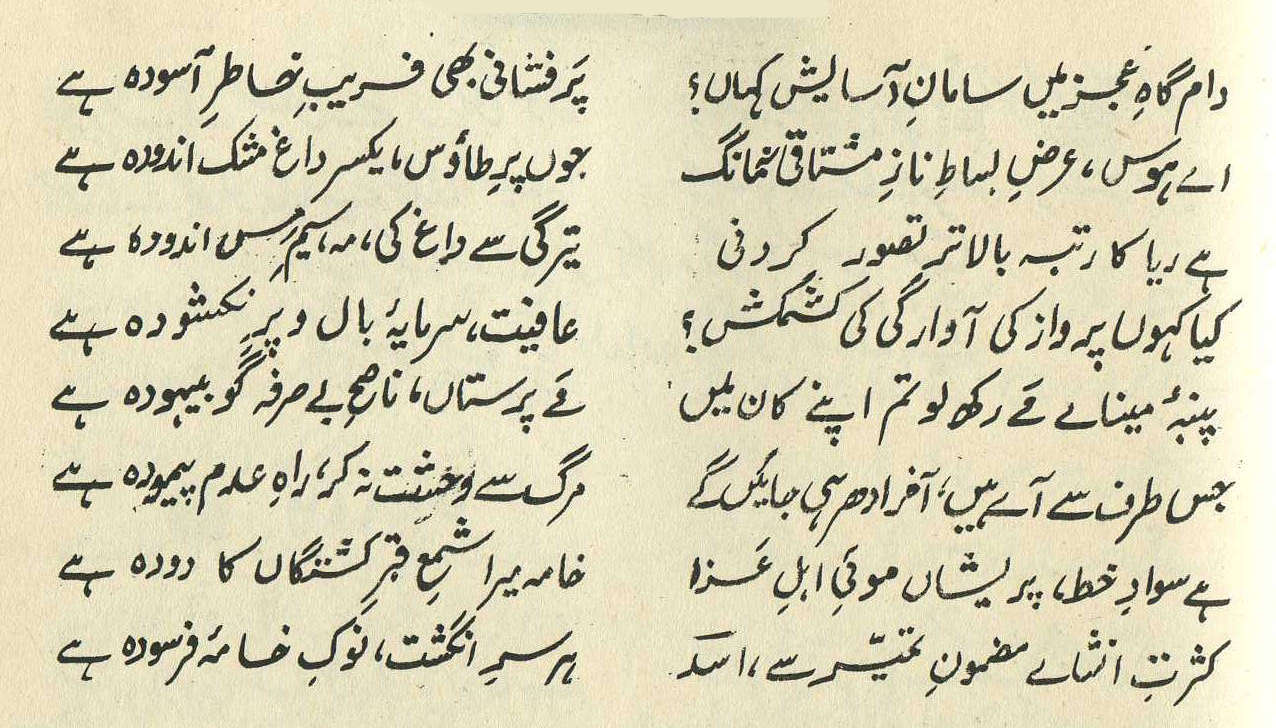 دام گاہِ عجز میں سامانِ آسایش کہاں؟ پَرفشانی بھی فریبِ خاطرِ آسودہ ہے
اے ہوس، عرضِ بساطِ نازِ مشتاقی نمانگ جوں پرِ طاؤس، یکسر داغ مشک اندودہ ہے
ہے ریا کا رتبہ بالاتر تصور کردنی تیرگی سے داغ کی، مہ، سیمِ مِس اندودہ ہے
کیا کہوں پرواز کی آوارگی کی کشمکش؟ عافیت، سرمایۂ بال و پرِ نکشودہ ہے
پنبۂ میناے مے رکھ لو تم اپنے کان میں مے پرستاں، ناصحِ بے صرفہ گو بیہودہ ہے
جس طرف سے آے ہیں، آخر ادھر ہی جایں گے مرگ سے وحشت نہ کر، راہِ عدم پیمودہ ہے
ہے سوادِ خط، پریشاں موئیِ اہلِ عَزا خامہ میرا شمعِ قبرِ کشتگاں کا دودہ ہے
کثرتِ انشاے مضمونِ تحیّر سے، اسدؔ ہر سرِ انگشت، نوکِ خامۂ فرسودہ ہے